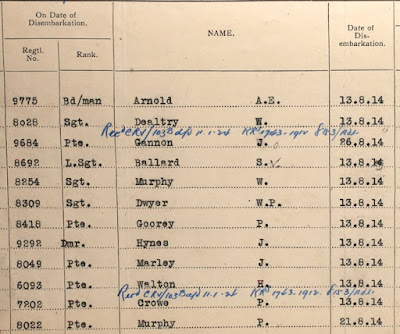 On Date of Disembarkation.
Regtl. No. Rank. NAME. Date of Dis-embarkation.
9775 Bd/man Arnold A.E. 13.8.14
8028 Sgt. Dealtry W. 13.8.14
11.1.26 1912
9684 Pte. Gannon J. 26.8.14
8692 L.Sgt. Ballard S. 13.8.14
8254 Sgt. Murphy W. 13.8.14
8309 Sgt. Dwyer W.P. 13.8.14
8418 Pte. Goorey P. 13.8.14
9292 Dmr. Hynes J. 13.8.14
8049 Pte. Marley J. 13.8.14
6093 Pte. Walton H. 13.8.14
11.1.26 1912
7202 Pte. Crowe P. 13.8.14
8022 Pte. Murphy P. 21.8.14